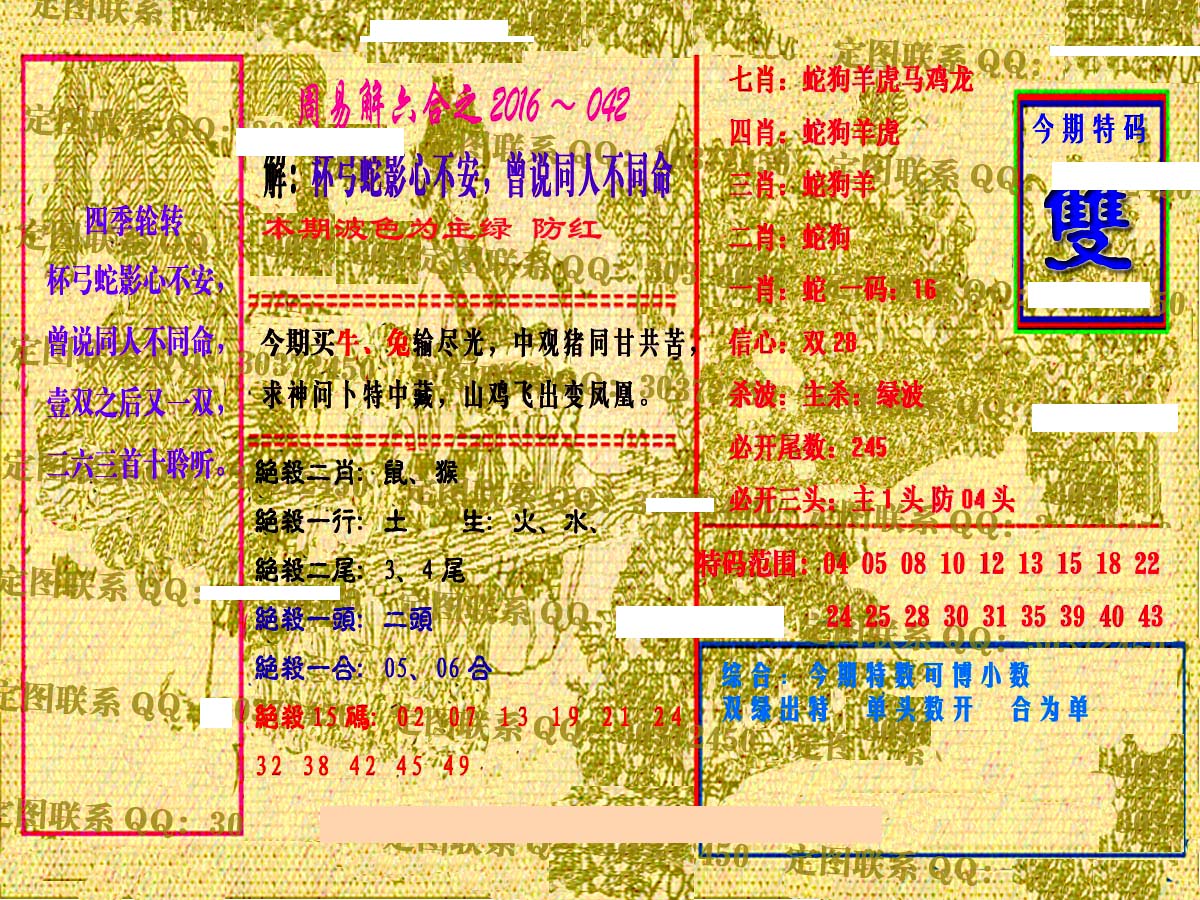 周易解六合之2016～042
解：杯弓蛇影心不安，曾说同人不同命
本期波色为主绿 防红
四季轮转
杯弓蛇影心不安，
曾说同人不同命，
壹双之后又一双，
二六三首十聆听。
今期买牛、兔输尽光，中观猪同甘共苦，
求神问卜特中藏，山鸡飞出变凤凰。
絕殺二肖：鼠、猴
絕殺一行：土 生：火、水、
絕殺二尾：3、4尾
絕殺一頭：二頭
絕殺一合：05、06合
絕殺15碼：02 07 13 19 21 24
32 38 42 45 49
七肖：蛇狗羊虎马鸡龙
四肖：蛇狗羊虎
三肖：蛇狗羊
二肖：蛇狗
一肖：蛇 一码：16
信心：双28
杀波：主杀：绿波
必开尾数：245
必开三头：主1头防04头
今期特码
雙
特码范围：04 05 08 10 12 13 15 18 22
24 25 28 30 31 35 39 40 43
综合：今期特数可博小数
双绿出特 单头数开 合为单